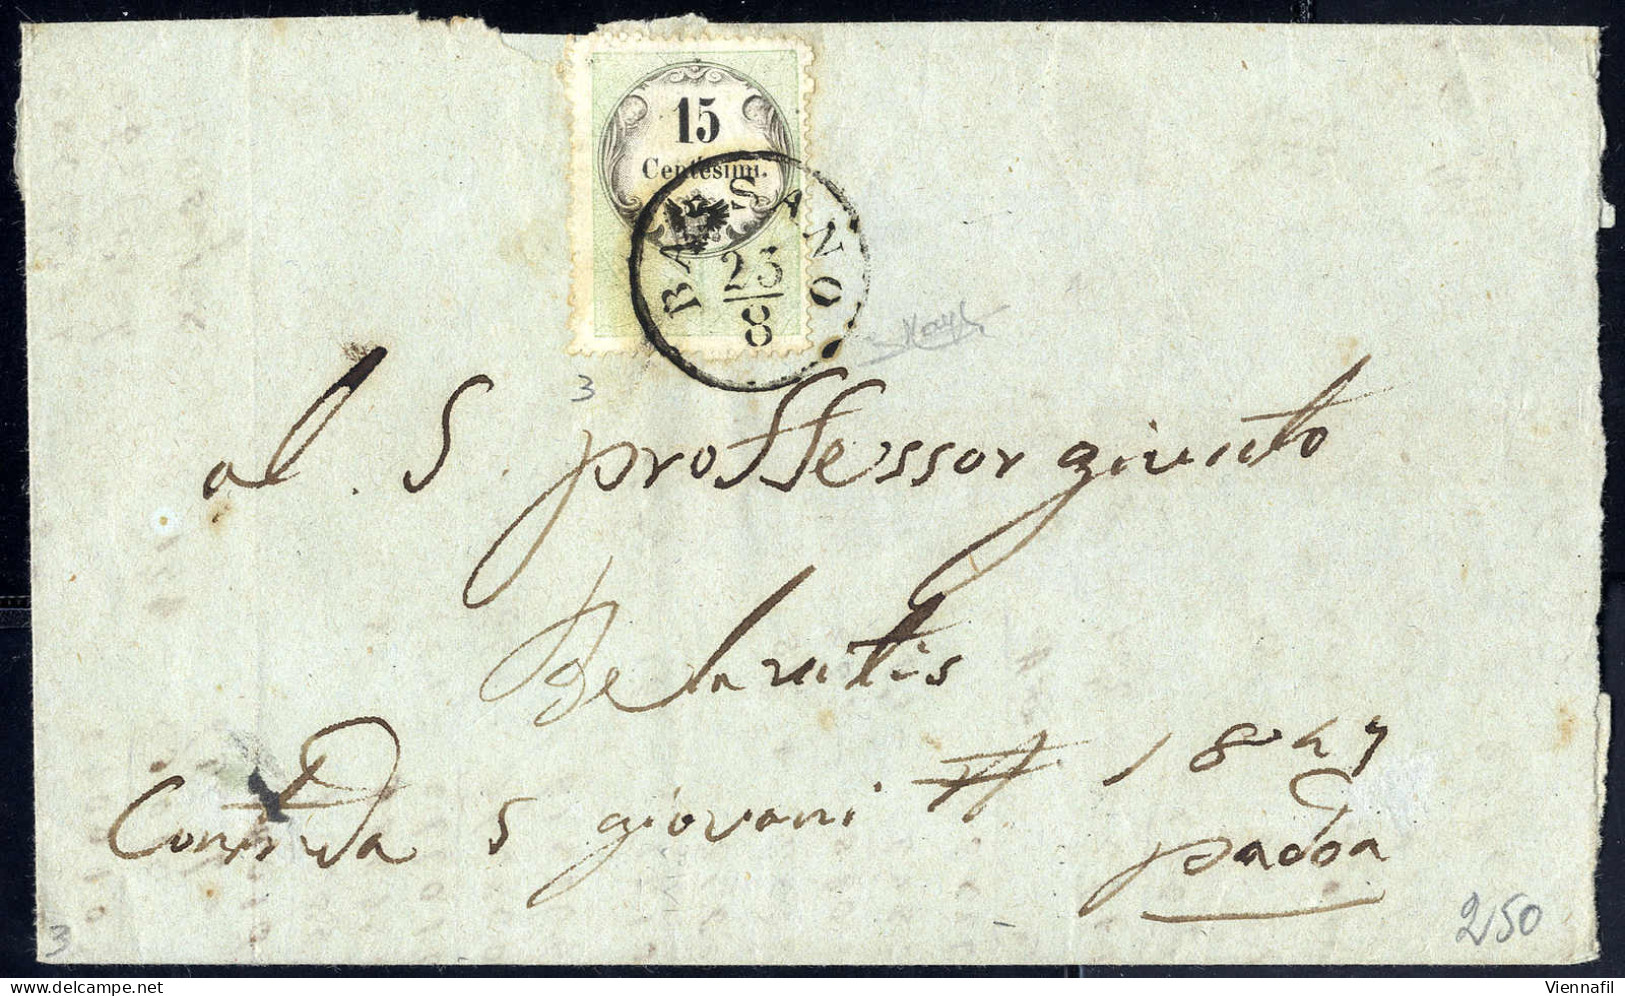 15
Centesimi.
BASSANO
23
8
3
al . S . proffessor giunto
De lantis
Contrada S giovani # 18
padova
3
250
delcampe.net
Viennafil